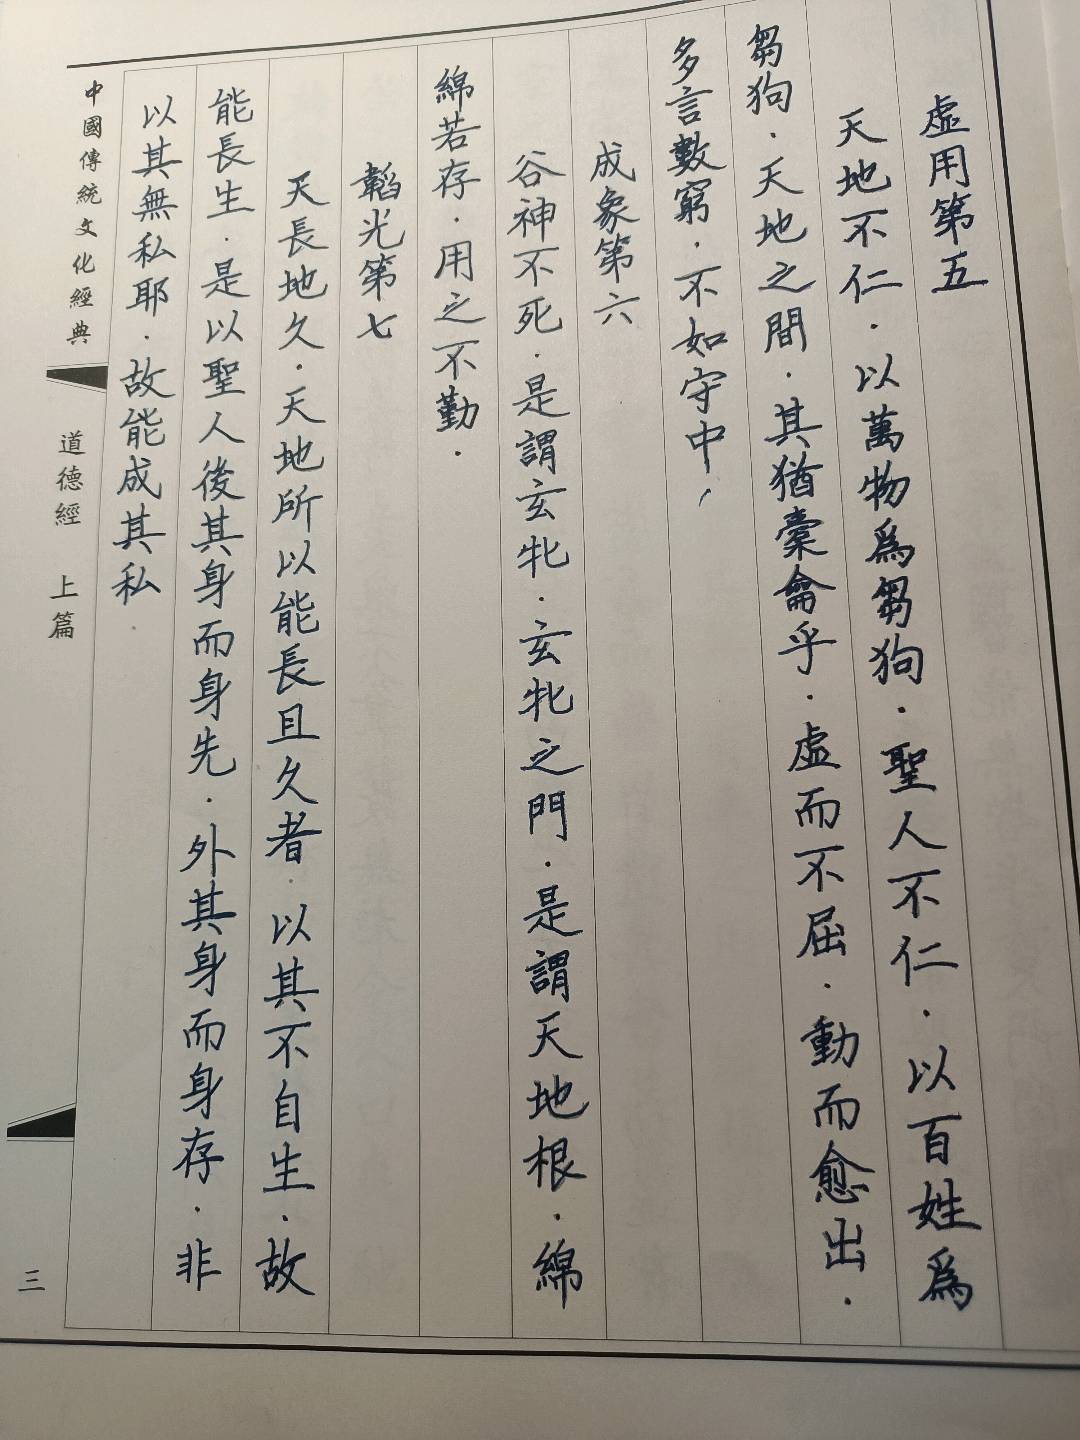 虛用第五
天地不仁．以萬物爲芻狗．聖人不仁．以百姓爲
芻狗．天地之間．其猶橐龠乎．虛而不屈．動而愈出．
多言數窮．不如守中．
成象第六
谷神不死．是謂玄牝．玄牝之門．是謂天地根．綿
綿若存．用之不勤．
韜光第七
天長地久．天地所以能長且久者．以其不自生．故
能長生．是以聖人後其身而身先．外其身而身存．非
以其無私耶．故能成其私．
中國傳統文化經典
道德經 上篇
三